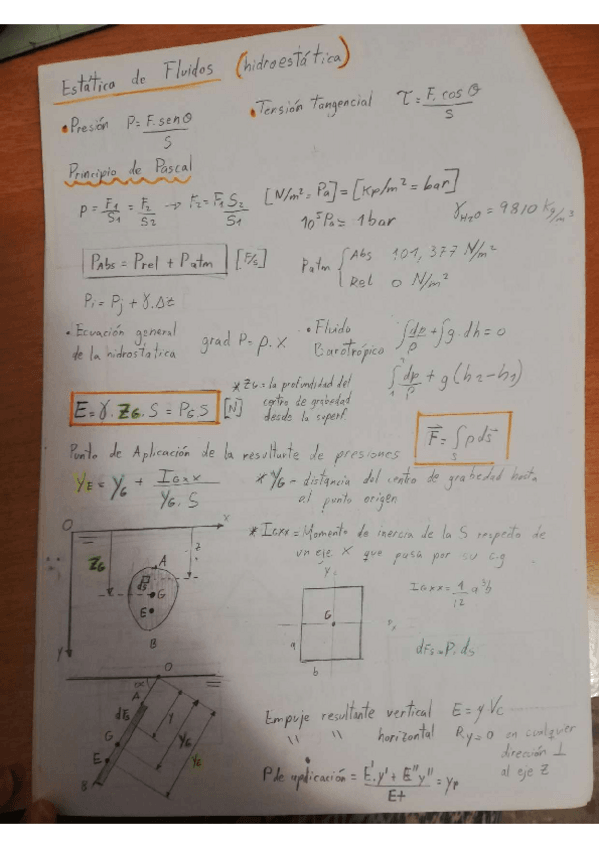 Estática de Fluidos (hidroestática)
• Presión P = F. senθ / S
• Tensión tangencial τ = F. cos θ / S
Principio de Pascal
P = F1/S1 = F2/S2 → F2 = F1 S2 / S1
[N/m² = Pa] = [Kp/m² = bar]
10⁵ Pa = 1 bar
γH2O = 9810 Kg/m³
PAbs = Prel + Patm [F/s]
Patm { Abs 101,377 N/m²
Rel 0 N/m²
Pi = Pj + γ.Δz
• Ecuación general
de la hidrostatica
grad P = ρ. x
• Fluido
Barotrópico
∫dp/ρ + ∫g. dh = 0
∫₁² dp/ρ + g (h2 - h1)
E = γ. ZG. S = PG S [N]
* ZG = la profundidad del
centro de grabedad
desde la superf.
F = ∫s p ds
Punto de Aplicación de la resultante de presiones
YE = YG + IGxx / YG. S
* YG - distancia del centro de grabedad hasta
al punto origen
* IGxx = Momento de inercia de la S respecto de
un eje X que pasa por su c.g
O x
ZG
z
A
ds
G
E
B
y
y
G
a
b
IGxx = 1/12 a³b
dFs = P. ds
O
α
A
dE
G
E
B
Y
YG
YE
Empuje resultante vertical E = γ.Vc
" " horizontal
P.y = 0 en cualquier
dirección ⊥
al eje Z
P de aplicación = E'. y' + E'' y'' / Et = yp